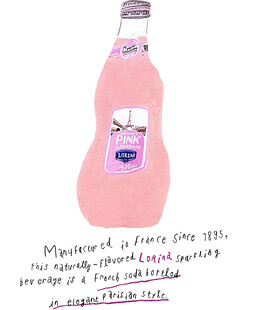 PINK
LEMONADE
LORINA
Manufactured in France since 1895,
this naturally-flavored Lorina sparkling
beverage is a French soda bottled
in elegant parisian style.